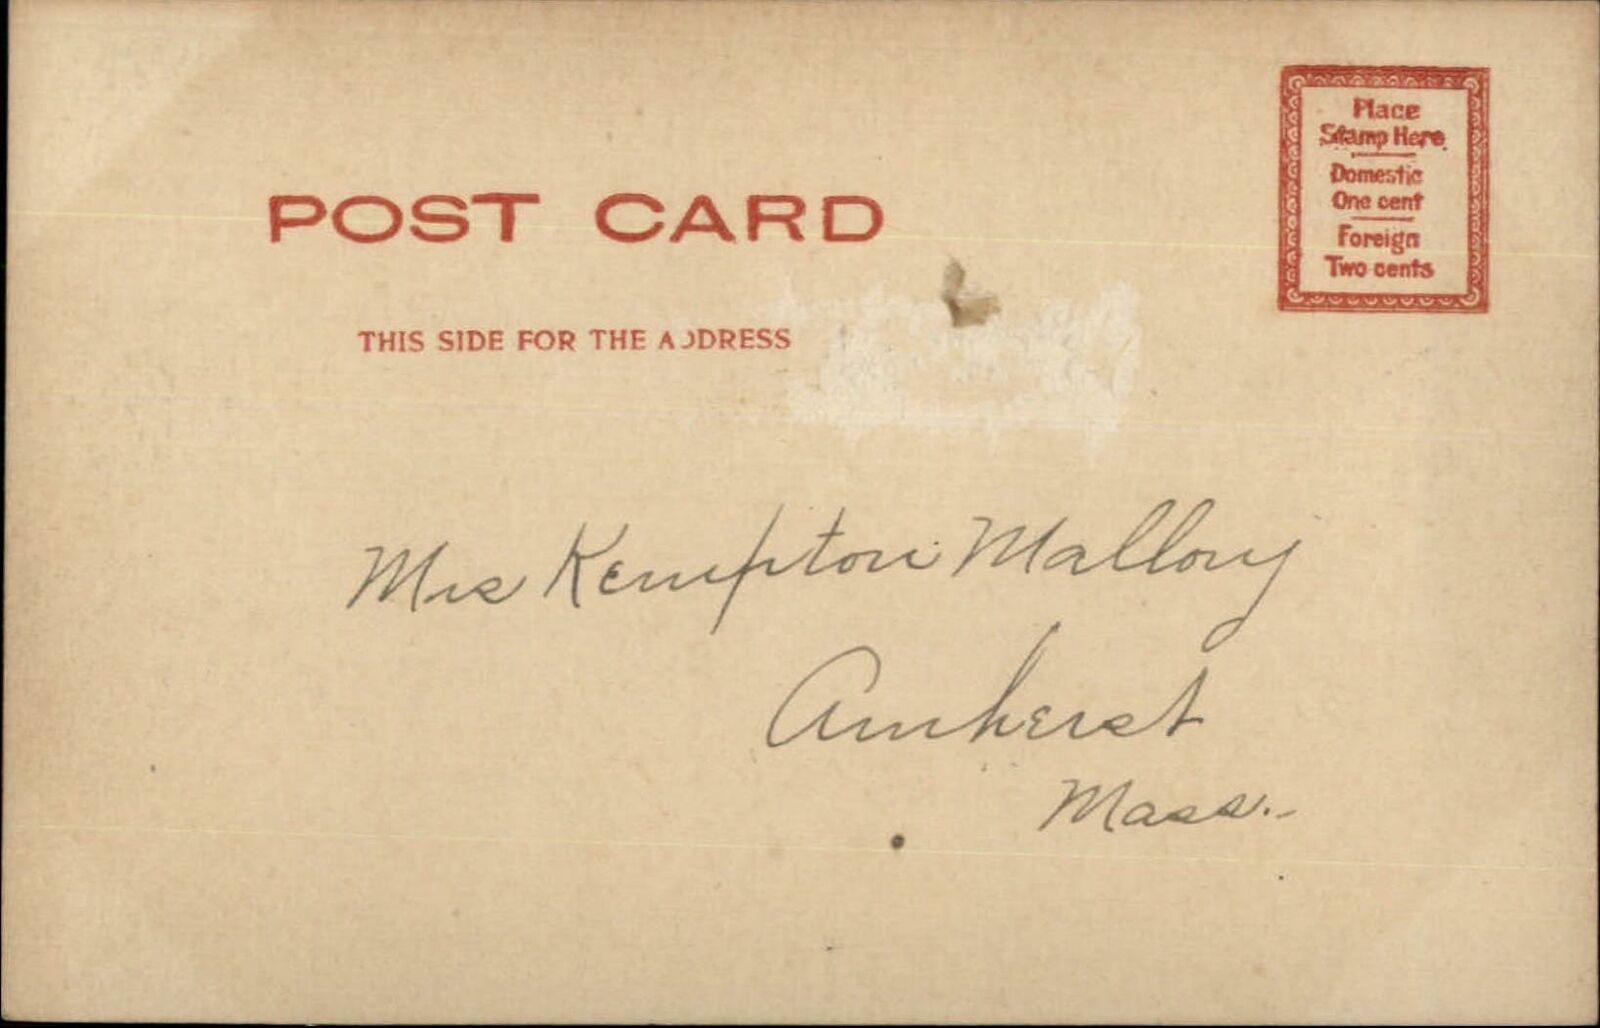 POST CARD
THIS SIDE FOR THE ADDRESS
Place
Stamp Here
Domestic
One cent
Foreign
Two cents
Mrs Kempton Mallory
Amherst
Mass.